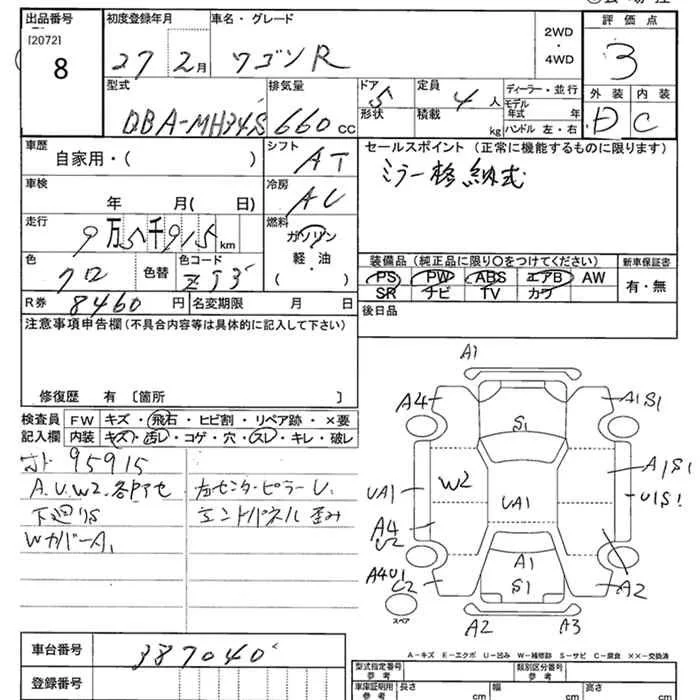 出品番号 初度登録年月 車名・グレード 2WD・4WD 評価点
[2072]
8 27 2月 ワゴンR 3
型式 排気量 ドア 5 定員 4人 ディーラー・並行 外装 内装
DBA-MH34S 660 CC 形状 積載 kg モデル年式 年 D C
ハンドル 左・右
車歴 自家用・( ) シフト AT セールスポイント(正常に機能するものに限ります)
ミラー格納式
車検 年 月( 日) 冷房 AC
走行 9万5千915km 燃料 ガソリン 軽油 ( )
装備品(純正品に限り〇をつけてください) 新車保証書
色 クロ 色替 色コード ZJ3 PS PW ABS エアB AW 有・無
SR ナビ TV カワ
R券 8460円 名変期限 月 日 後日品
注意事項申告欄(不具合内容等は具体的に記入して下さい)
修復歴 有〔箇所 〕
検査員記入欄 FW キズ・飛石・ヒビ割・リペア跡・×要
内装 キズ・汚レ・コゲ・穴・スレ・キレ・破レ
95915
A.U.W2.各 左センターピラーU.
下廻りS エンドパネル歪み
WカバーA1
A1
A4 A1S1
S1
W2 A1S1
UA1 UA1 U1S1
A4
U2
A1
S1 A2
スペア
A2 A3
A-キズ E-エクボ U-凹み W-補修跡 S-サビ C-腐食 ××-交換済
車台番号 387040
登録番号
型式指定番号 参考 類別区分番号 参考
車庫証明用 参考 長さ cm 幅 cm 高さ cm